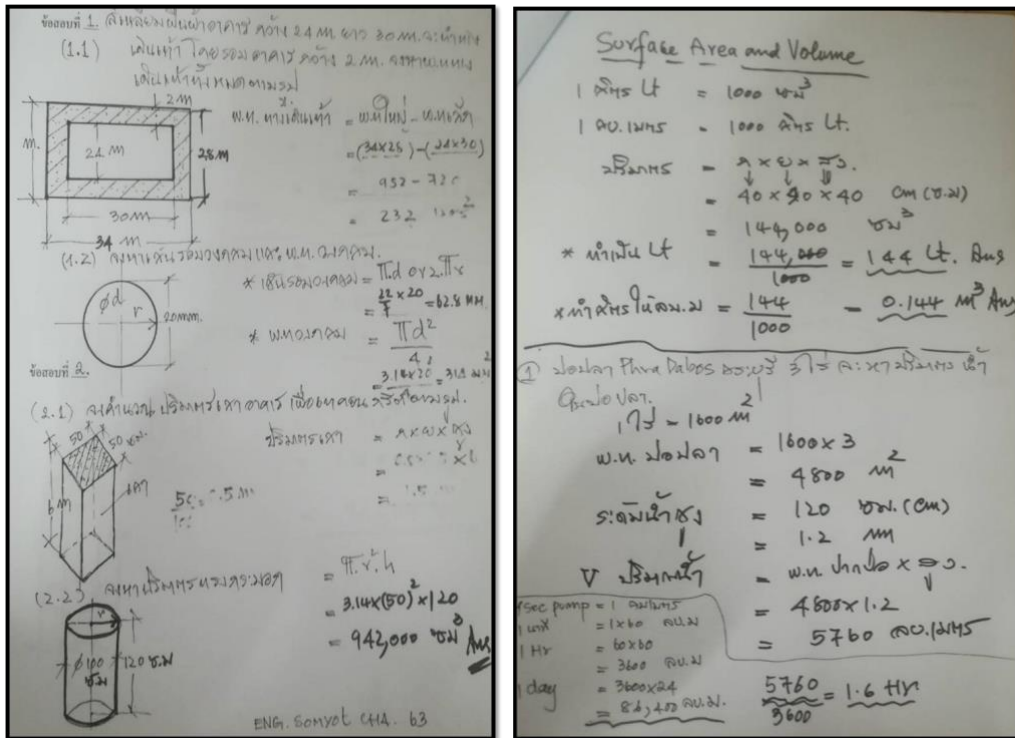 ข้อสอบที่ 1. สี่เหลี่ยมผืนผ้าอาคาร กว้าง 24 m ยาว 30 m.
(1.1) เดินเท้า โดยรอบอาคาร กว้าง 2 m.
เดินเท้าทั้งหมดตามรูป
2 m
24 m
28 m
30 m
34 m
m.
พ.ท. ทางเดินเท้า = พ.ท.ใหญ่ - พ.ท.เล็ก
= (34x28) - (24x30)
= 952 - 720
= 232
(1.2) จงหาเส้นรอบวงกลม และ พ.ท. วงกลม.
φd
r
20 mm.
* เส้นรอบวงกลม = πd or 2πr
= 22/7 x 20 = 62.8 MM.
* พ.ท.วงกลม = πd²/4
= 3.14x20²/4 = 314
ข้อสอบที่ 2.
(2.1) จงคำนวณ ปริมาตรเสาอาคาร
50 50 ซม.
6 m
เสา
ปริมาตรเสา = กxยxสูง
(2.2) จงหาปริมาตรทรงกระบอก
r
φ100 ซม
120 ซ.ม
= π.r².h
= 3.14x(50)²x120
= 942,000 ซม³ Ans
ENG. SOMYOT CHA. 63
Surface Area and Volume
1 ลิตร Lt = 1000 ซม³
1 ลบ.เมตร = 1000 ลิตร Lt.
ปริมาตร = ก x ย x ส.
= 40 x 90 x 40 cm (ซ.ม)
= 144,000 ซม³
* ทำเป็น Lt = 144,000/1000 = 144 Lt. Ans
*ทำลิตรให้ลบ.ม = 144/1000 = 0.144 m³ Ans
① บ่อปลา Phra Dabos สระบุรี 3 ไร่ จะหาปริมาตรน้ำ
ในบ่อปลา.
1 ไร่ = 1600 m²
พ.ท. บ่อปลา = 1600 x 3
= 4800 m²
ระดับน้ำสูง = 120 ซม. (cm)
= 1.2 m
∇ ปริมาตรน้ำ = พ.ท ปากบ่อ x ส.
= 4800 x 1.2
= 5760 ลบ.เมตร
1 sec pump = 1 ลบเมตร
1 นาที = 1x60 ลบ.ม
1 Hr = 60x60
= 3600 ลบ.ม
1 day = 3600x24
= 86,400 ลบ.ม.
5760/3600 = 1.6 Hr